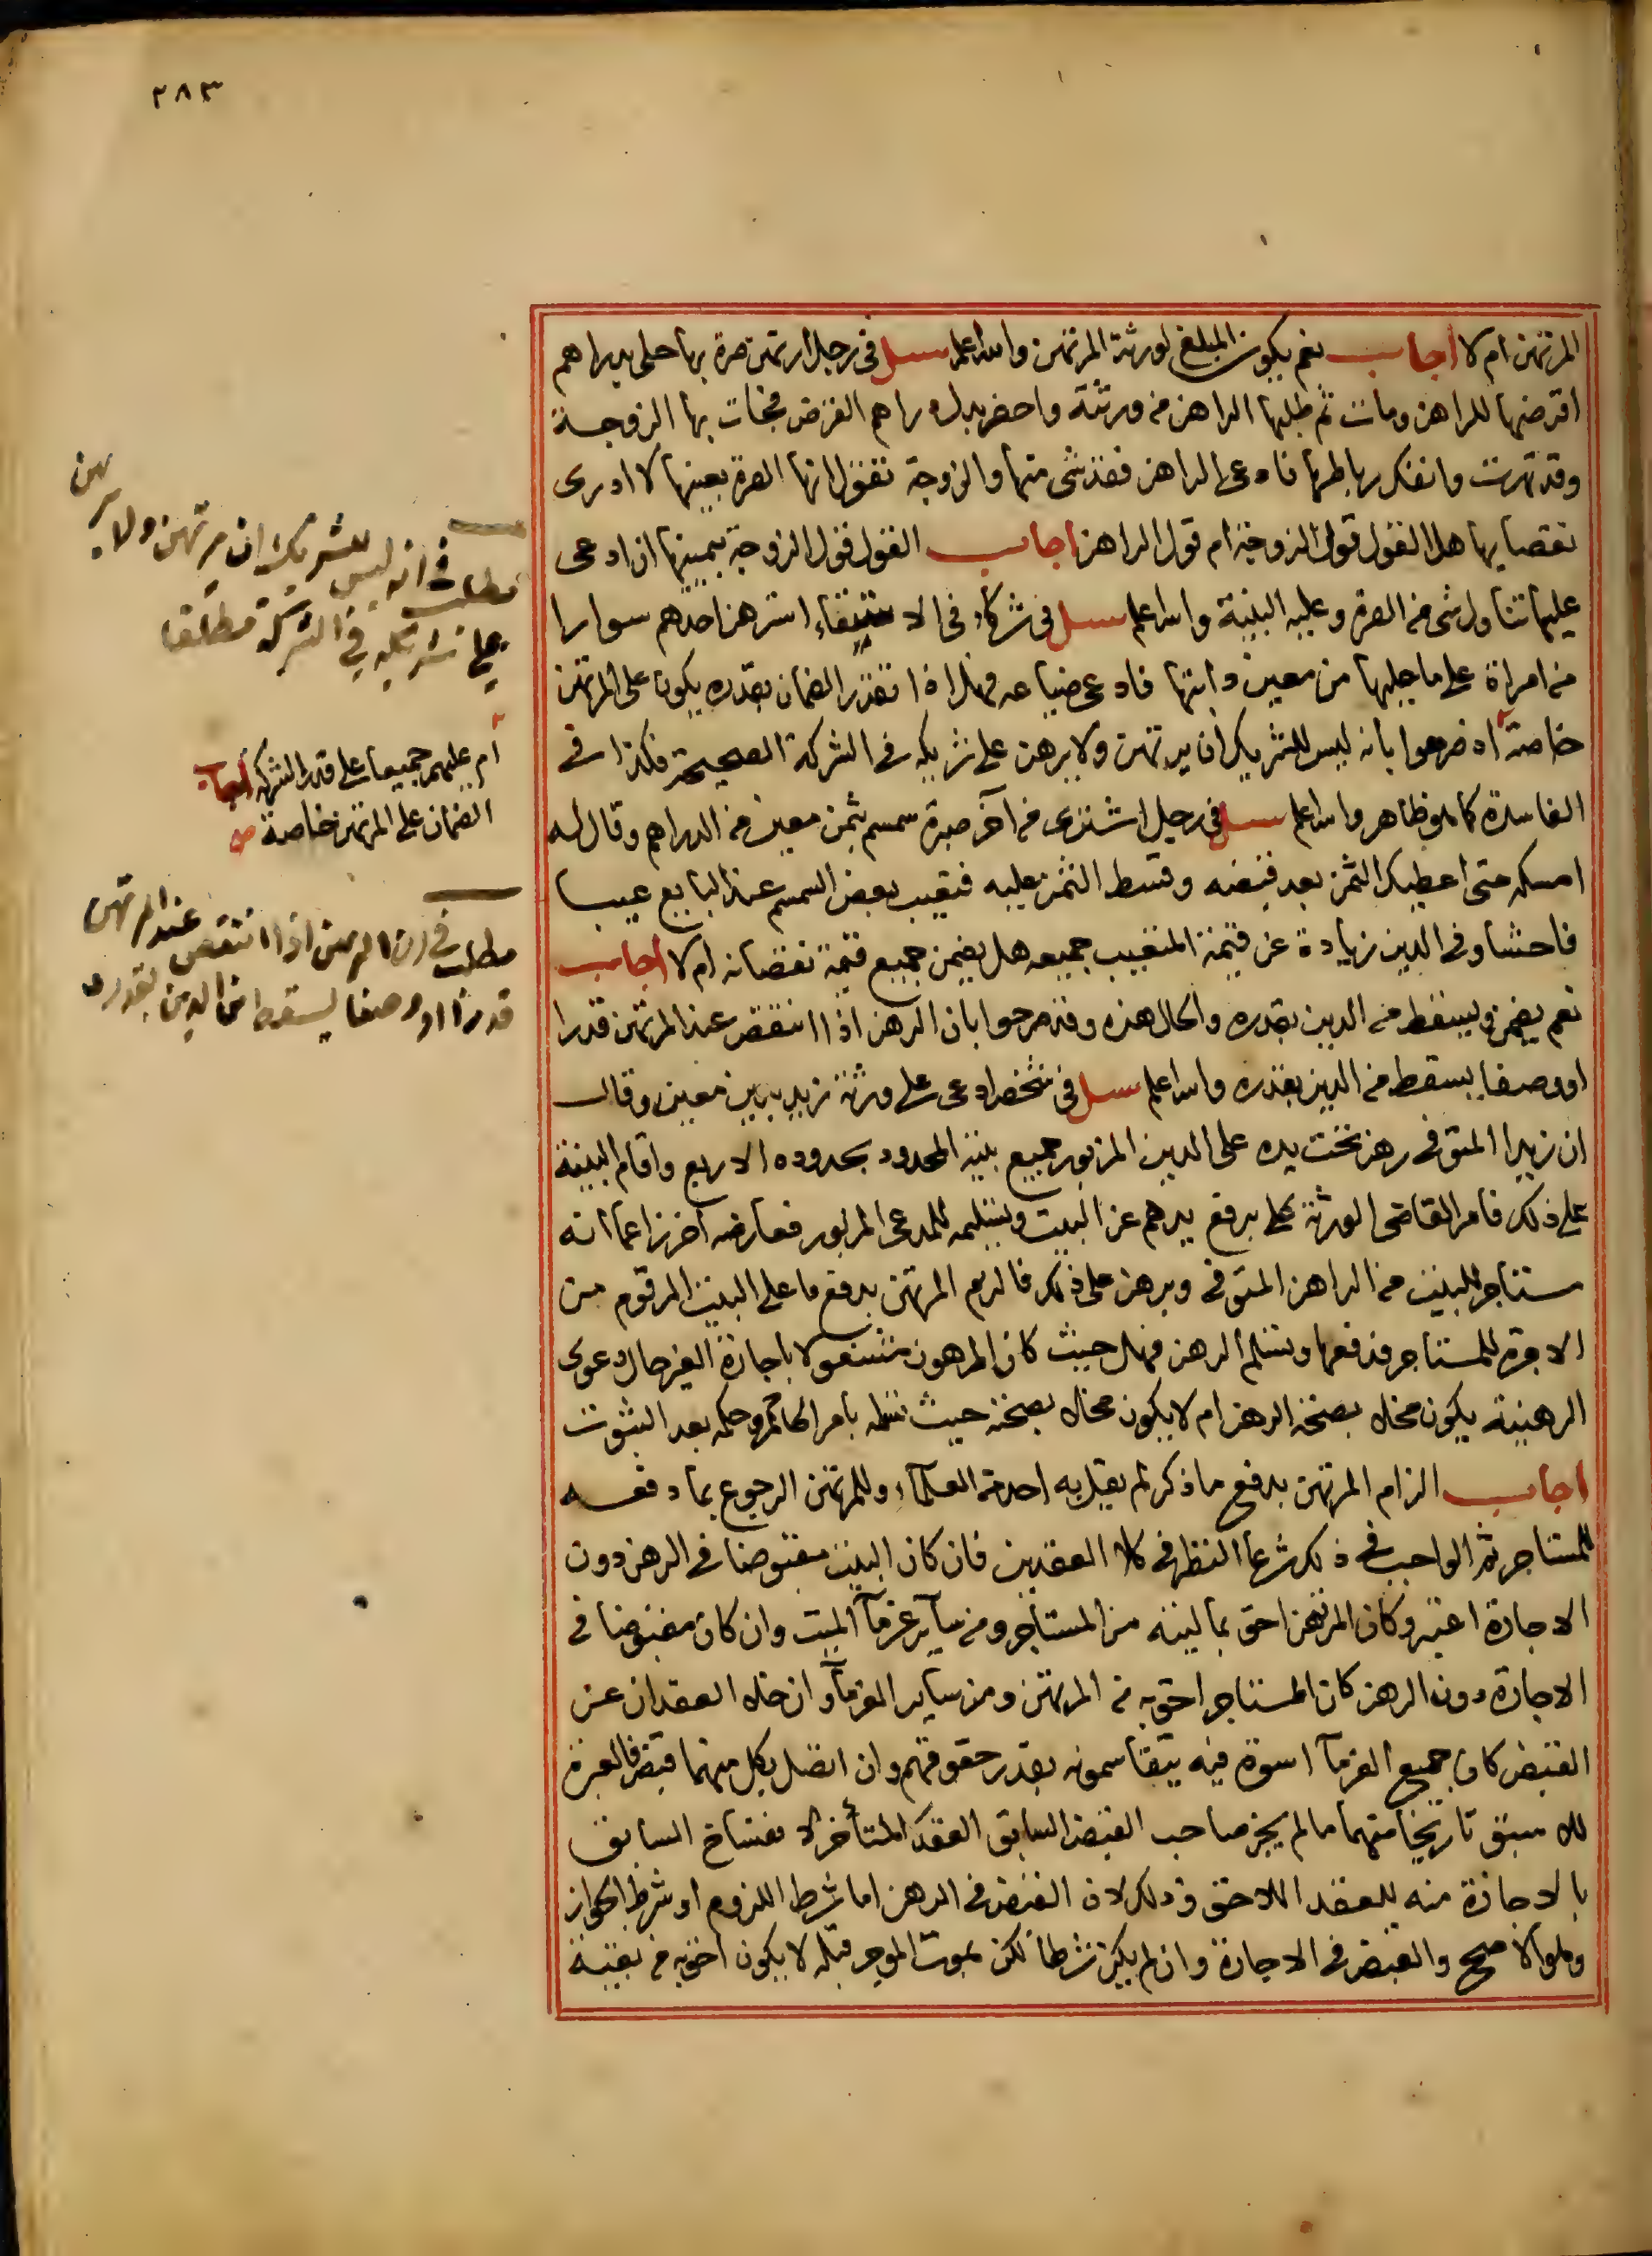 ٢٨٣
المرتهن ام لا اجاب نعم يكون المبلغ لورثة المرتهن والله اعلم سئل في رجل ارتهن صرة بها حلى بدراهم
اقترضها للراهن ومات ثم طلبها الراهن من ورثته واحضر بدل دراهم القرض فجات بها الزوجة
وقد تهرت وانفك رباطها فادعى الراهن فقد شى منها والزوجة تقول انها الصرة بعينها لا ادرى
نقصا بها هل القول قول الزوجة ام قول الراهن اجاب القول قول الزوجة بيمينها ان ادعى
عليها تناول شى من الصرة وعليه البينة والله اعلم سئل في شركاء في الا استرهن احدهم سوارا
من امراة على ما جلبها من معين دابتها فادعى ضياعه فهل اذا تقرر الضمان بقدره يكون على المرتهن
خاصة اذ صرحوا بانه ليس للشريك ان يرتهن ولا يرهن على شريكه في الشركة الصحيحة فكذا في
الفاسدة كما هو ظاهر والله اعلم سئل في رجل اشترى من آخر صبرة سمسم بثمن معين من الدراهم وقال له
امسكه حتى اعطيك الثمن بعد قبضه وقسط الثمن عليه فتعيب بعض السمسم عند البايع عيبا
فاحشا وفي الدين زيادة عن قيمة المتعيب جميعه هل يضمن جميع قيمة نقصانه ام لا اجاب
نعم يضمن ويسقط من الدين بقدره والحال هذه وقد صرحوا بان الرهن اذا انتقص عند المرتهن قدرا
او وصفا يسقط من الدين بقدره والله اعلم سئل في شخص ادعى على ورثة زيد بدين معين وقال
ان زيدا المتوفى رهن تحت يده على الدين المزبور جميع بيته المحدود بحدوده الاربع واقام البينة
على ذلك فامر القاضى الورثة برفع يدهم عن البيت وبتسليمه للمدعى المزبور فعارضه اخر زاعما انه
مستاجر للبيت من الراهن المتوفى وبرهن على ذلك فالزم المرتهن بدفع ما على البيت المرقوم من
الاجرة للمستاجر فدفعها وتسلم الرهن فهل حيث كان المرهون مشغولا باجارة الغير حال دعوى
الرهنية يكون مخلا بصحة الرهن ام لا يكون مخلا بصحته حيث تسلمه بامر الحاكم وحكمه بعد الثبوت
اجاب الزام المرتهن بدفع ما ذكر لم يقل به احد من العلماء وللمرتهن الرجوع بما دفعه
للمستاجر ثم الواجب في ذلك شرعا النظر في كلا العقدين فان كان البيت مقبوضا في الرهن دون
الاجارة اعتبر وكان المرتهن احق بماليته من المستاجر ومن سآير غرمآ الميت وان كان مقبوضا في
الاجارة دون الرهن كان المستاجر احق به من المرتهن ومن سآير الغرمآ وان خلا العقدان عن
القبض كان جميع الغرمآ اسوة فيه يتقاسمونه بقدر حقوقهم وان اتصل بكل منهما قبض فالعبرة
للاسبق تاريخا منهما ما لم يجز صاحب القبض السابق العقد المتأخر لانفساخ السابق
بالاجازة منه للعقد اللاحق وذلك لان القبض في الرهن اما شرط اللزوم او شرط الجواز
وهو الاصح والقبض في الاجارة وان لم يكن شرطا لكن بموت الموجر قبله لا يكون احق به من بقية
مطلب في انه ليس للشريك ان يرتهن ولا يرهن
على شريكه في الشركة مطلقا
ام عليهم جميعا على قدر الشركة اجاب
الضمان على المرتهن خاصة صح
مطلب في ان الرهن اذا انتقص عند المرتهن
قدرا او وصفا يسقط من الدين بقدره